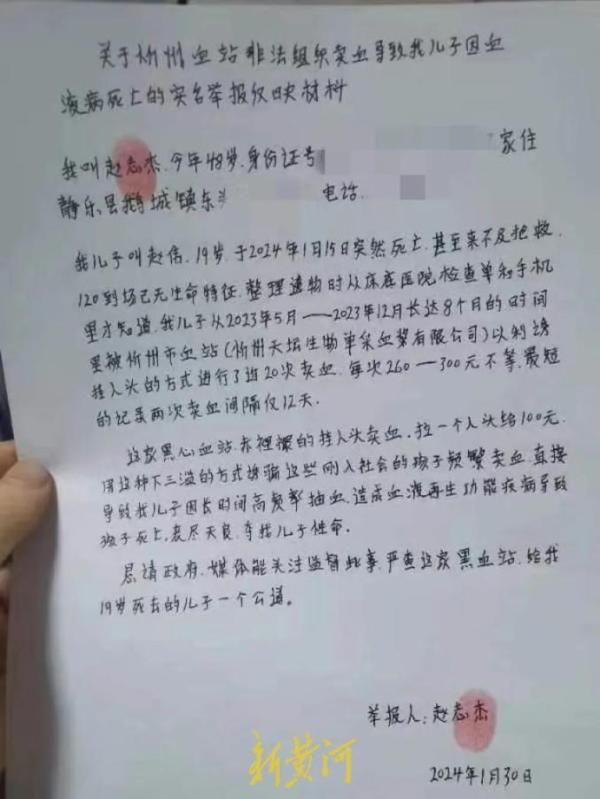 关于忻州血站非法组织卖血导致我儿子因血
液病死亡的实名举报反映材料
我叫赵志杰.今年48岁.身份证号 家住
静乐县鹅城镇东 电话
我儿子叫赵伟,19岁,于2024年1月15日突然死亡.甚至来不及抢救.
120到场已无生命特征.整理遗物时从床底医院检查单和手机
里才知道.我儿子从2023年5月——2023年12月长达8个月的时间
里被忻州市血站(忻州天坛生物单采血浆有限公司)以利诱
挂人头的方式进行了近20次卖血.每次260—300元不等.最短
的记录两次卖血间隔仅12天.
这家黑心血站.赤裸裸的挂人头卖血.拉一个人头给100元.
用这种下三滥的方式诱骗这些刚入社会的孩子频繁卖血.直接
导致我儿子因长时间高频率抽血.造成血液再生功能疾病导致
孩子死亡.丧尽天良.夺我儿子性命.
恳请政府.媒体能关注监督此事.严查这家黑血站.给我
19岁死去的儿子一个公道。
举报人:赵志杰
新黄河
2024年1月30日